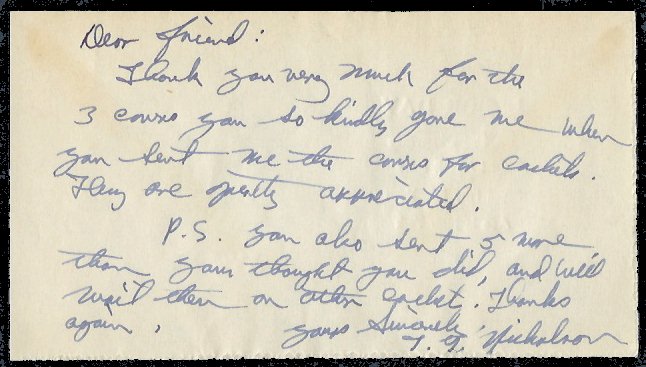 Dear friend:
Thank you very much for the
3 covers you so kindly gave me when
you sent me the covers for cachets.
They are greatly appreciated.
P.S. you also sent 5 more
than you thought you did, and we'll
wait then on other cachet. Thanks
again,
yours Sincerely
Nickolson